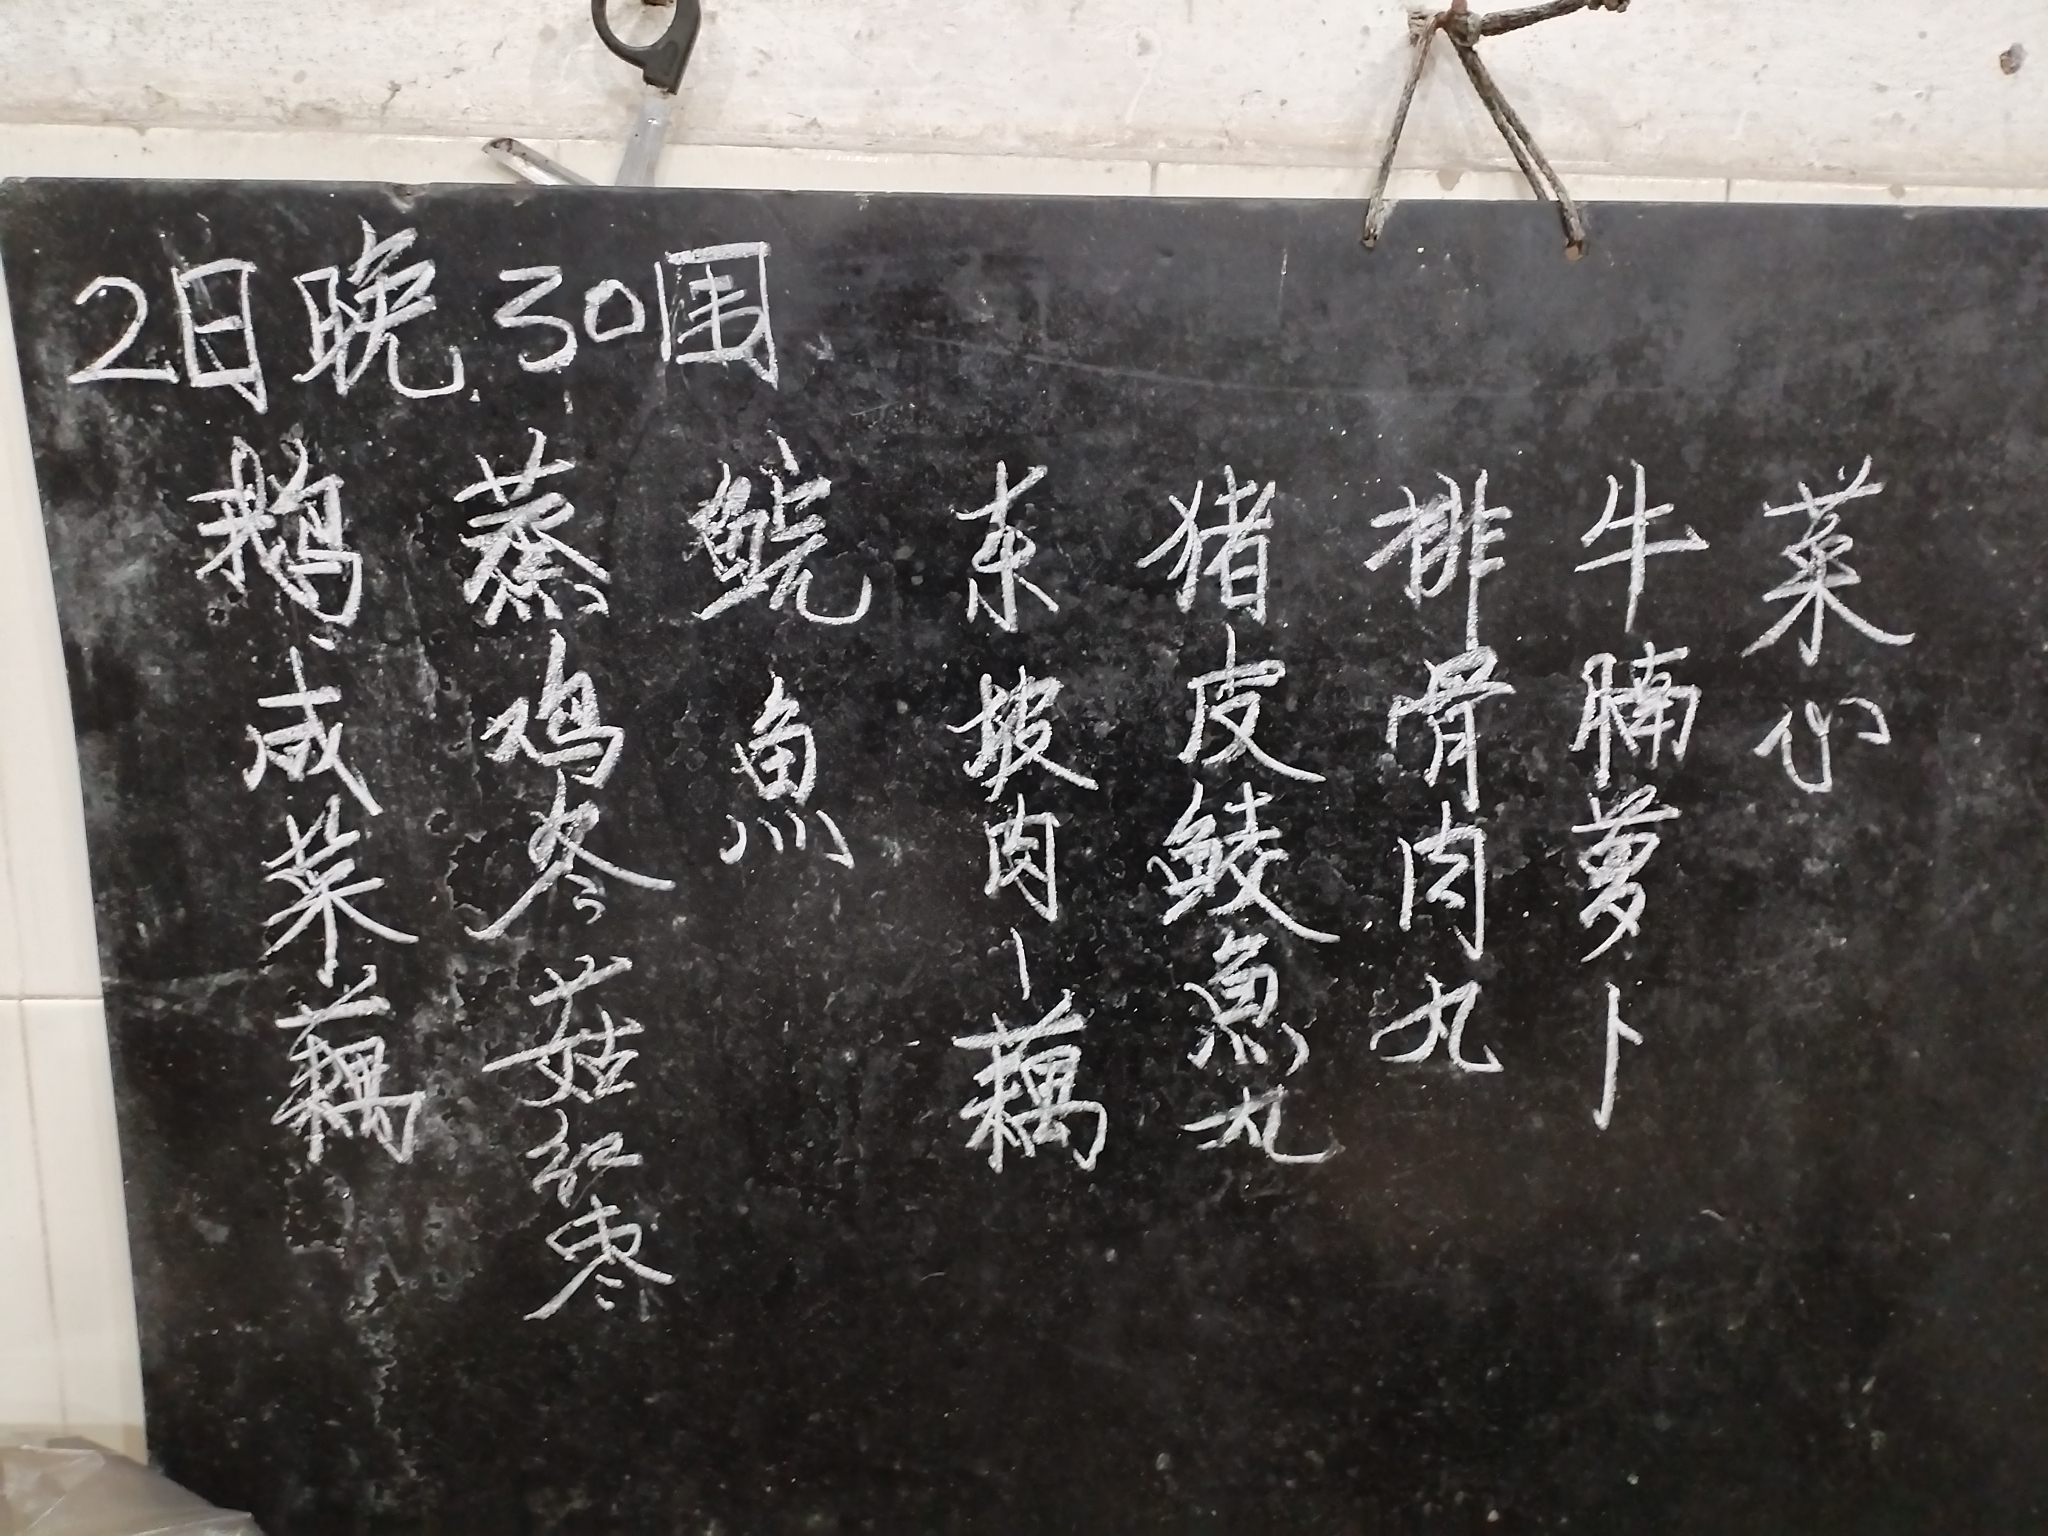 2日晚30围
鹅咸菜藕
蒸鸡冬菇红枣
鲩鱼
东坡肉-藕
猪皮鲮鱼丸
排骨肉丸
牛腩萝卜
菜心